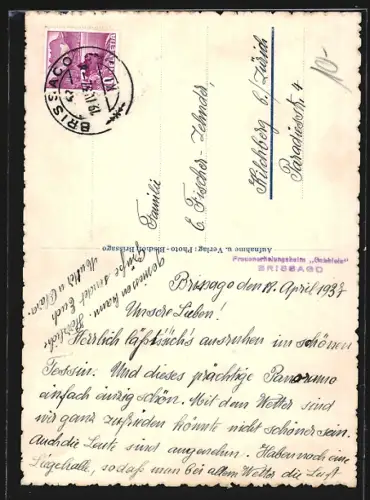 10.-
BRISSAGO
Familie
E. Fischer-Zehnder,
Kilchberg b/Zürich
Paradiesstr. 4
Aufnahme u. Verlag: Photo-Bischof, Brissago
Frauenerholungsheim
BRISSAGO
Brissago den 18. April 1937
Unsere Lieben!
Herrlich läßt sich's ausruhen im schönen
Tessin. Und dieses prächtige Panorama
einfach einzig schön. Mit dem Wetter sind
wir ganz zufrieden könnte nicht schöner sein.
Auch die Leute sind angenehm. Haben noch eine
Liegehalle, sodaß man bei allem Wetter die Luft
geniessen kann
Herzliche Grüße sendet Euch
Mutti u.